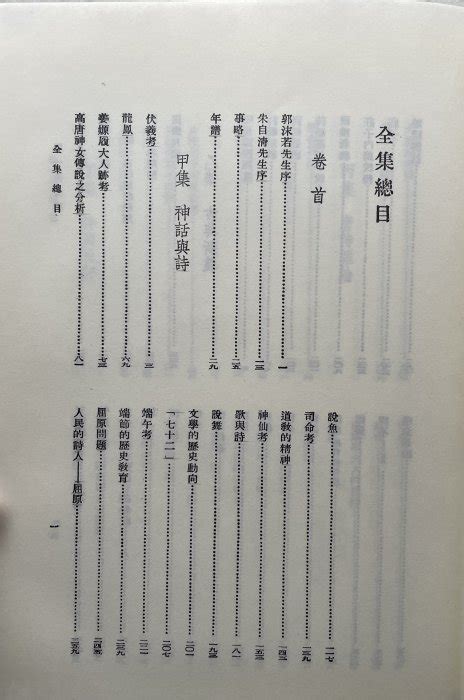 全集總目
卷首
郭沫若先生序……一
朱自清先生序……一三
事略……二五
年譜……二九
甲集 神話與詩
伏羲考……三
龍鳳……六九
姜嫄履大人跡考……七三
高唐神女傳說之分析……八一
說魚……一一七
司命考……一三九
道教的精神……一四三
神仙考……一五三
歌與詩……一八一
說舞……一九三
文學的歷史動向……二〇一
「七十二」……二〇七
端午考……二二一
端節的歷史教育……二三九
屈原問題……二四五
人民的詩人——屈原……二五九
全集總目
一